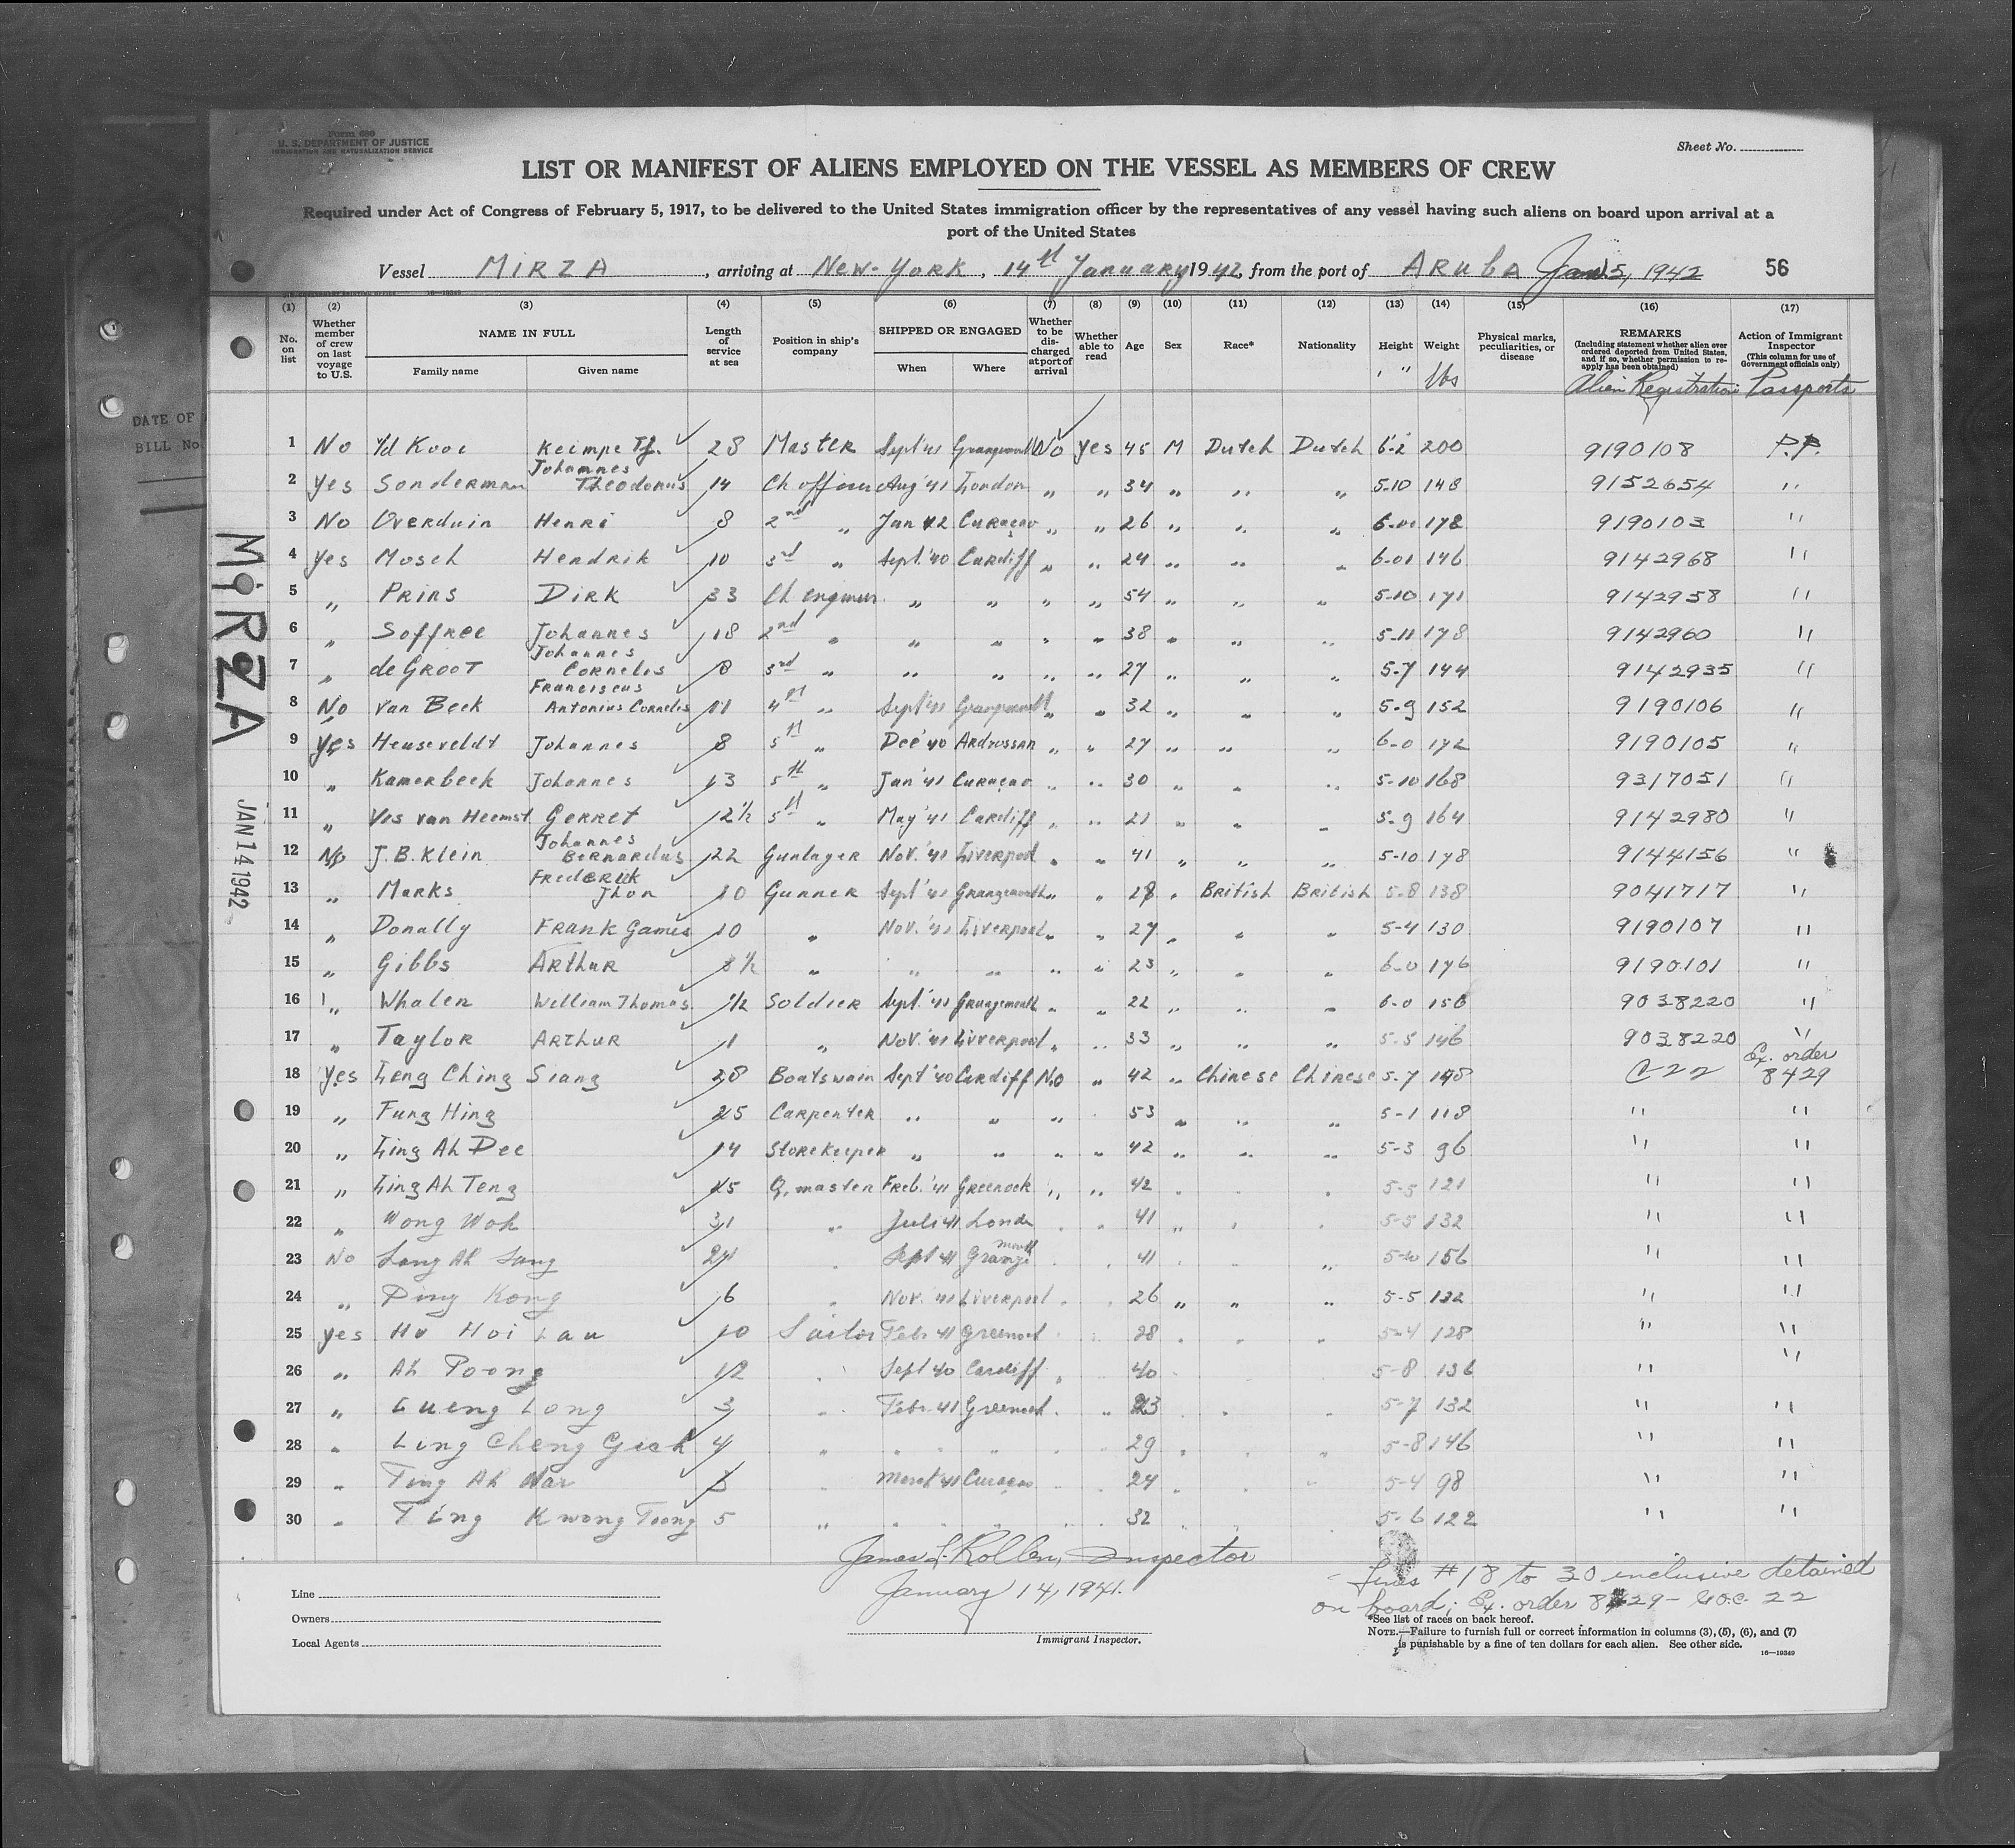 Form 680
U. S. DEPARTMENT OF JUSTICE
IMMIGRATION AND NATURALIZATION SERVICE
Sheet No.
LIST OR MANIFEST OF ALIENS EMPLOYED ON THE VESSEL AS MEMBERS OF CREW
Required under Act of Congress of February 5, 1917, to be delivered to the United States immigration officer by the representatives of any vessel having such aliens on board upon arrival at a
port of the United States
Vessel MIRZA, arriving at New-York, 14th January, 1942, from the port of ARUBA Jan. 5, 1942 56
(1) (2) (3) (4) (5) (6) (7) (8) (9) (10) (11) (12) (13) (14) (15) (16) (17)
No. on list
Whether member of crew on last voyage to U.S.
NAME IN FULL
Family name
Given name
Length of service at sea
Position in ship's company
SHIPPED OR ENGAGED
When
Where
Whether to be discharged at port of arrival
Whether able to read
Age
Sex
Race*
Nationality
Height ' "
Weight lbs
Physical marks, peculiarities, or disease
REMARKS
(Including statement whether alien ever ordered deported from United States, and if so, whether permission to reapply has been obtained)
Alien Registration
Action of Immigrant Inspector
(This column for use of Government officials only)
Passports
DATE OF
BILL No.
MIRZA
JAN 14 1942
1 No v/d Kooi Keimpe Tj. 28 Master Sept '41 Grangemouth No Yes 45 M Dutch Dutch 6-2 200 9190108 P.P.
2 Yes Sonderman Johannes Theodorus 14 Ch officer Aug '41 London " " 34 " " " 5-10 148 9152654 "
3 No Overduin Henri 8 2nd " Jan 42 Curaçao " " 26 " " " 6-01 178 9190103 "
4 Yes Mosch Hendrik 10 3rd " Sept. '40 Cardiff " " 24 " " " 6-01 146 9142968 "
5 " Prins Dirk 33 Ch engineer " " " " 54 " " " 5-10 171 9142958 "
6 " Soffree Johannes 18 2nd " " " " " 38 " " " 5-11 178 9142960 "
7 " de Groot Johannes Cornelis 8 3rd " " " " " 27 " " " 5-7 144 9142935 "
8 No van Beek Franciscus Antonius Cornelis 11 4th " Sept '41 Grangemouth " " 32 " " " 5-9 152 9190106 "
9 Yes Heuseveldt Johannes 8 5th " Dec '40 Ardrossan " " 27 " " " 6-0 172 9190105 "
10 " Kamerbeek Johannes 13 5th " Jan '41 Curaçao " " 30 " " " 5-10 168 9317051 "
11 " Vos van Heemst Gerret 12½ 5th " May '41 Cardiff " " 21 " " " 5-9 164 9142980 "
12 No J.B. Klein Johannes Bernardus 22 Gunlayer Nov. '41 Liverpool " " 41 " " " 5-10 178 9144156 "
13 " Marks Frederik Jhon 10 Gunner Sept '41 Grangemouth " " 28 " British British 5-8 138 9041717 "
14 " Donally Frank Games 10 " Nov. '41 Liverpool " " 27 " " " 5-4 130 9190107 "
15 " Gibbs Arthur 8½ " " " " " 23 " " " 6-0 176 9190101 "
16 " Whalen William Thomas ½ Soldier Sept. '41 Grangemouth " " 22 " " " 6-0 156 9038220 "
17 " Taylor Arthur 1 " Nov '41 Liverpool " " 33 " " " 5-5 146 9038220 "
18 Yes Leng Ching Siang 28 Boatswain Sept '40 Cardiff No " 42 " Chinese Chinese 5-7 148 C 22 Ex. order 8429
19 " Fung Hing 25 Carpenter " " " " 53 " " " 5-1 118 " "
20 " Ling Ah Dee 14 Storekeeper " " " " 42 " " " 5-3 96 " "
21 " Ling Ah Teng 15 Q. master Feb. '41 Greenock " " 42 " " " 5-5 121 " "
22 " Wong Wok 31 " Juli 41 London " " 41 " " " 5-5 132 " "
23 No Ah 24 " Sept 41 Grangemouth " " 41 " " " 5-10 156 " "
24 " Ding Kong 6 " Nov. '41 Liverpool " " 26 " " " 5-5 132 " "
25 Yes Ho Hoi Lau 10 Sailor Febr 41 Greenock " " 28 " " " 5-4 128 " "
26 " Ah Poong 12 " Sept 40 Cardiff " " 40 " " " 5-8 136 " "
27 " Lueng Long 3 " Febr. 41 Greenock " " 23 " " " 5-7 132 " "
28 " Ling Cheng 4 " " " " " 29 " " " 5-8 146 " "
29 " Ting Ah " Maret 41 Curaçao " " 24 " " " 5-4 98 " "
30 " Ting Kwong Toong 5 " " " " " 32 " " " 5-6 122 " "
James L. Rollen, Inspector
January 14, 1941.
Lines #18 to 30 inclusive detained
on board; Ex. order 8429 - G.O.C. 22
Line
Owners
Local Agents
Immigrant Inspector.
*See list of races on back hereof.
NOTE.—Failure to furnish full or correct information in columns (3), (5), (6), and (7)
is punishable by a fine of ten dollars for each alien. See other side.
16—19349